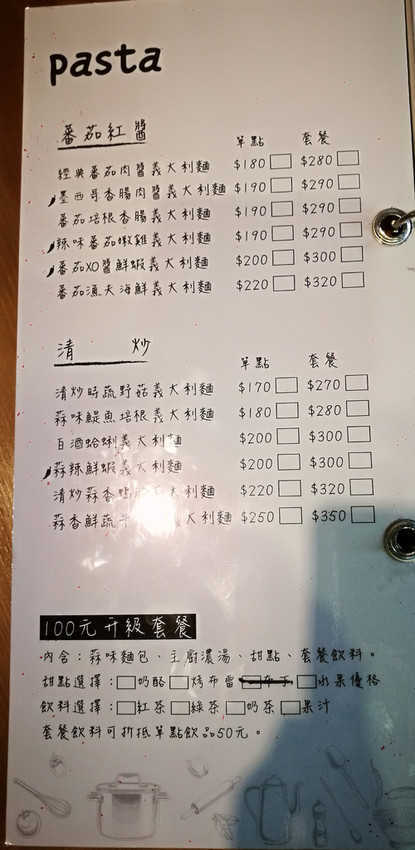 pasta
蕃茄紅醬
單點 套餐
經典蕃茄肉醬義大利麵 $180 $280
墨西哥香腸肉醬義大利麵 $190 $290
蕃茄培根香腸義大利麵 $190 $290
辣味蕃茄嫩雞義大利麵 $190 $290
蕃茄XO醬鮮蝦義大利麵 $200 $300
蕃茄漁夫海鮮義大利麵 $220 $320
清炒
單點 套餐
清炒時蔬野菇義大利麵 $170 $270
蒜味鯷魚培根義大利麵 $180 $280
白酒蛤蜊義大利麵 $200 $300
蒜辣鮮蝦義大利麵 $200 $300
清炒蒜香 義大利麵 $220 $320
蒜香鮮蔬 大利麵 $250 $350
100元升級套餐
內含:蒜味麵包、主廚濃湯、甜點、套餐飲料。
甜點選擇:奶酪 烤布雷 水果優格
飲料選擇:紅茶 綠茶 奶茶 果汁
套餐飲料可折抵單點飲品50元。